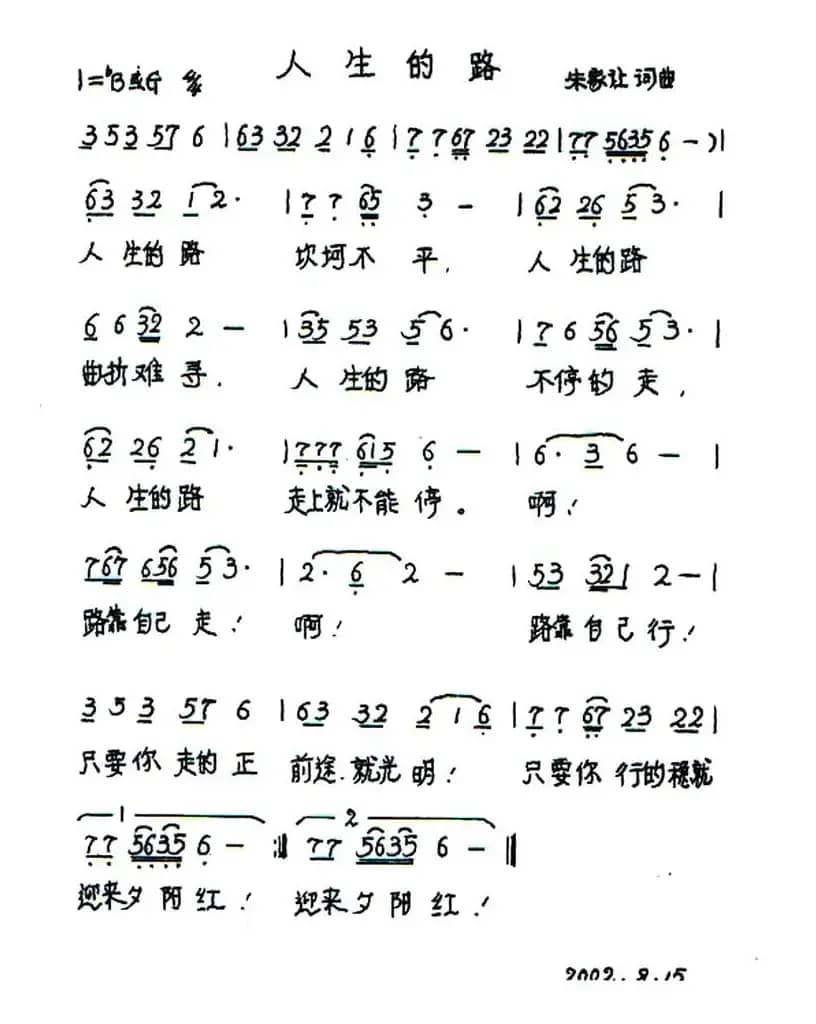 人生的路
1=♭B或G 4/4 朱家让 词曲
3 5 3 57 6 | 63 32 2 1 6 | 7 7 67 23 22 | 77 5635 6 - ) |
63 32 1 2· | 7 7 65 3 - | 62 26 5 3· |
人 生的 路 坎坷不 平, 人 生的路
6 6 32 2 - | 35 53 5 6· | 7 6 56 5 3· |
曲折难 寻, 人 生的 路 不停的 走,
62 26 2 1· | 777 615 6 - | 6· 3 6 - |
人 生的路 走上就不能 停。 啊!
767 656 5 3· | 2· 6 2 - | 53 321 2 - |
路靠自己 走! 啊! 路靠自己行!
3 5 3 57 6 | 63 32 2 1 6 | 7 7 67 23 22 |
只要你 走的 正 前途.就光明! 只要你 行的稳就
1 2
77 5635 6 - :‖ 77 5635 6 - ‖
迎来夕阳红! 迎来夕阳红!
2002.8.15